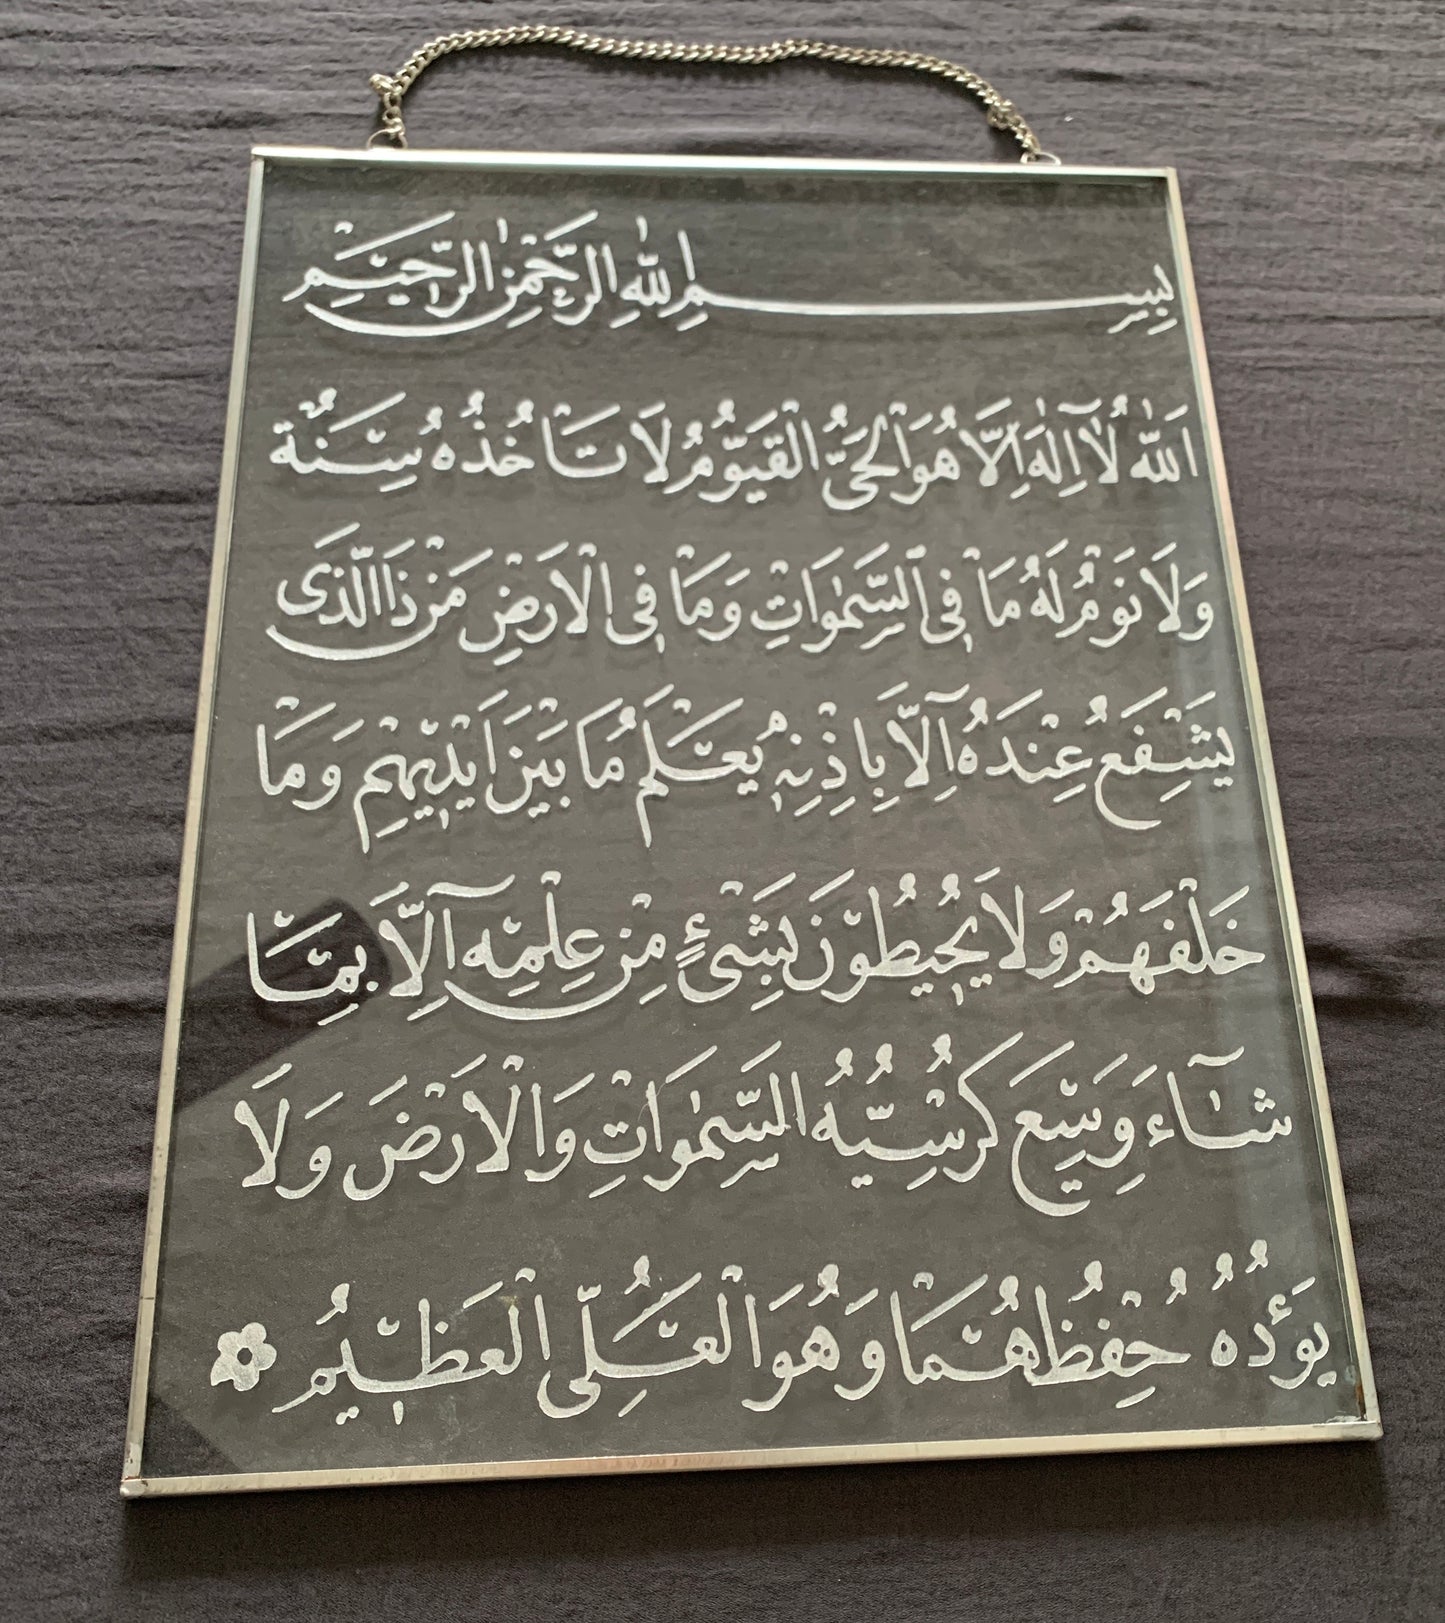 بِسْمِ اللّٰهِ الرَّحْمٰنِ الرَّحِيْمِ
اَللّٰهُ لَآ اِلٰهَ اِلَّا هُوَ الْحَىُّ الْقَيُّوْمُ لَا تَاْخُذُهُ سِنَةٌ
وَلَا نَوْمٌ لَهُ مَا فِى السَّمٰوَاتِ وَمَا فِى الْاَرْضِ مَنْ ذَا الَّذِى
يَشْفَعُ عِنْدَهُ اِلَّا بِاِذْنِهِ يَعْلَمُ مَا بَيْنَ اَيْدِيْهِمْ وَمَا
خَلْفَهُمْ وَلَا يُحِيْطُوْنَ بِشَىْءٍ مِنْ عِلْمِهِ اِلَّا بِمَا
شَآءَ وَسِعَ كُرْسِيُّهُ السَّمٰوَاتِ وَالْاَرْضَ وَلَا
يَؤُدُهُ حِفْظُهُمَا وَهُوَ الْعَلِىُّ الْعَظِيْمُ